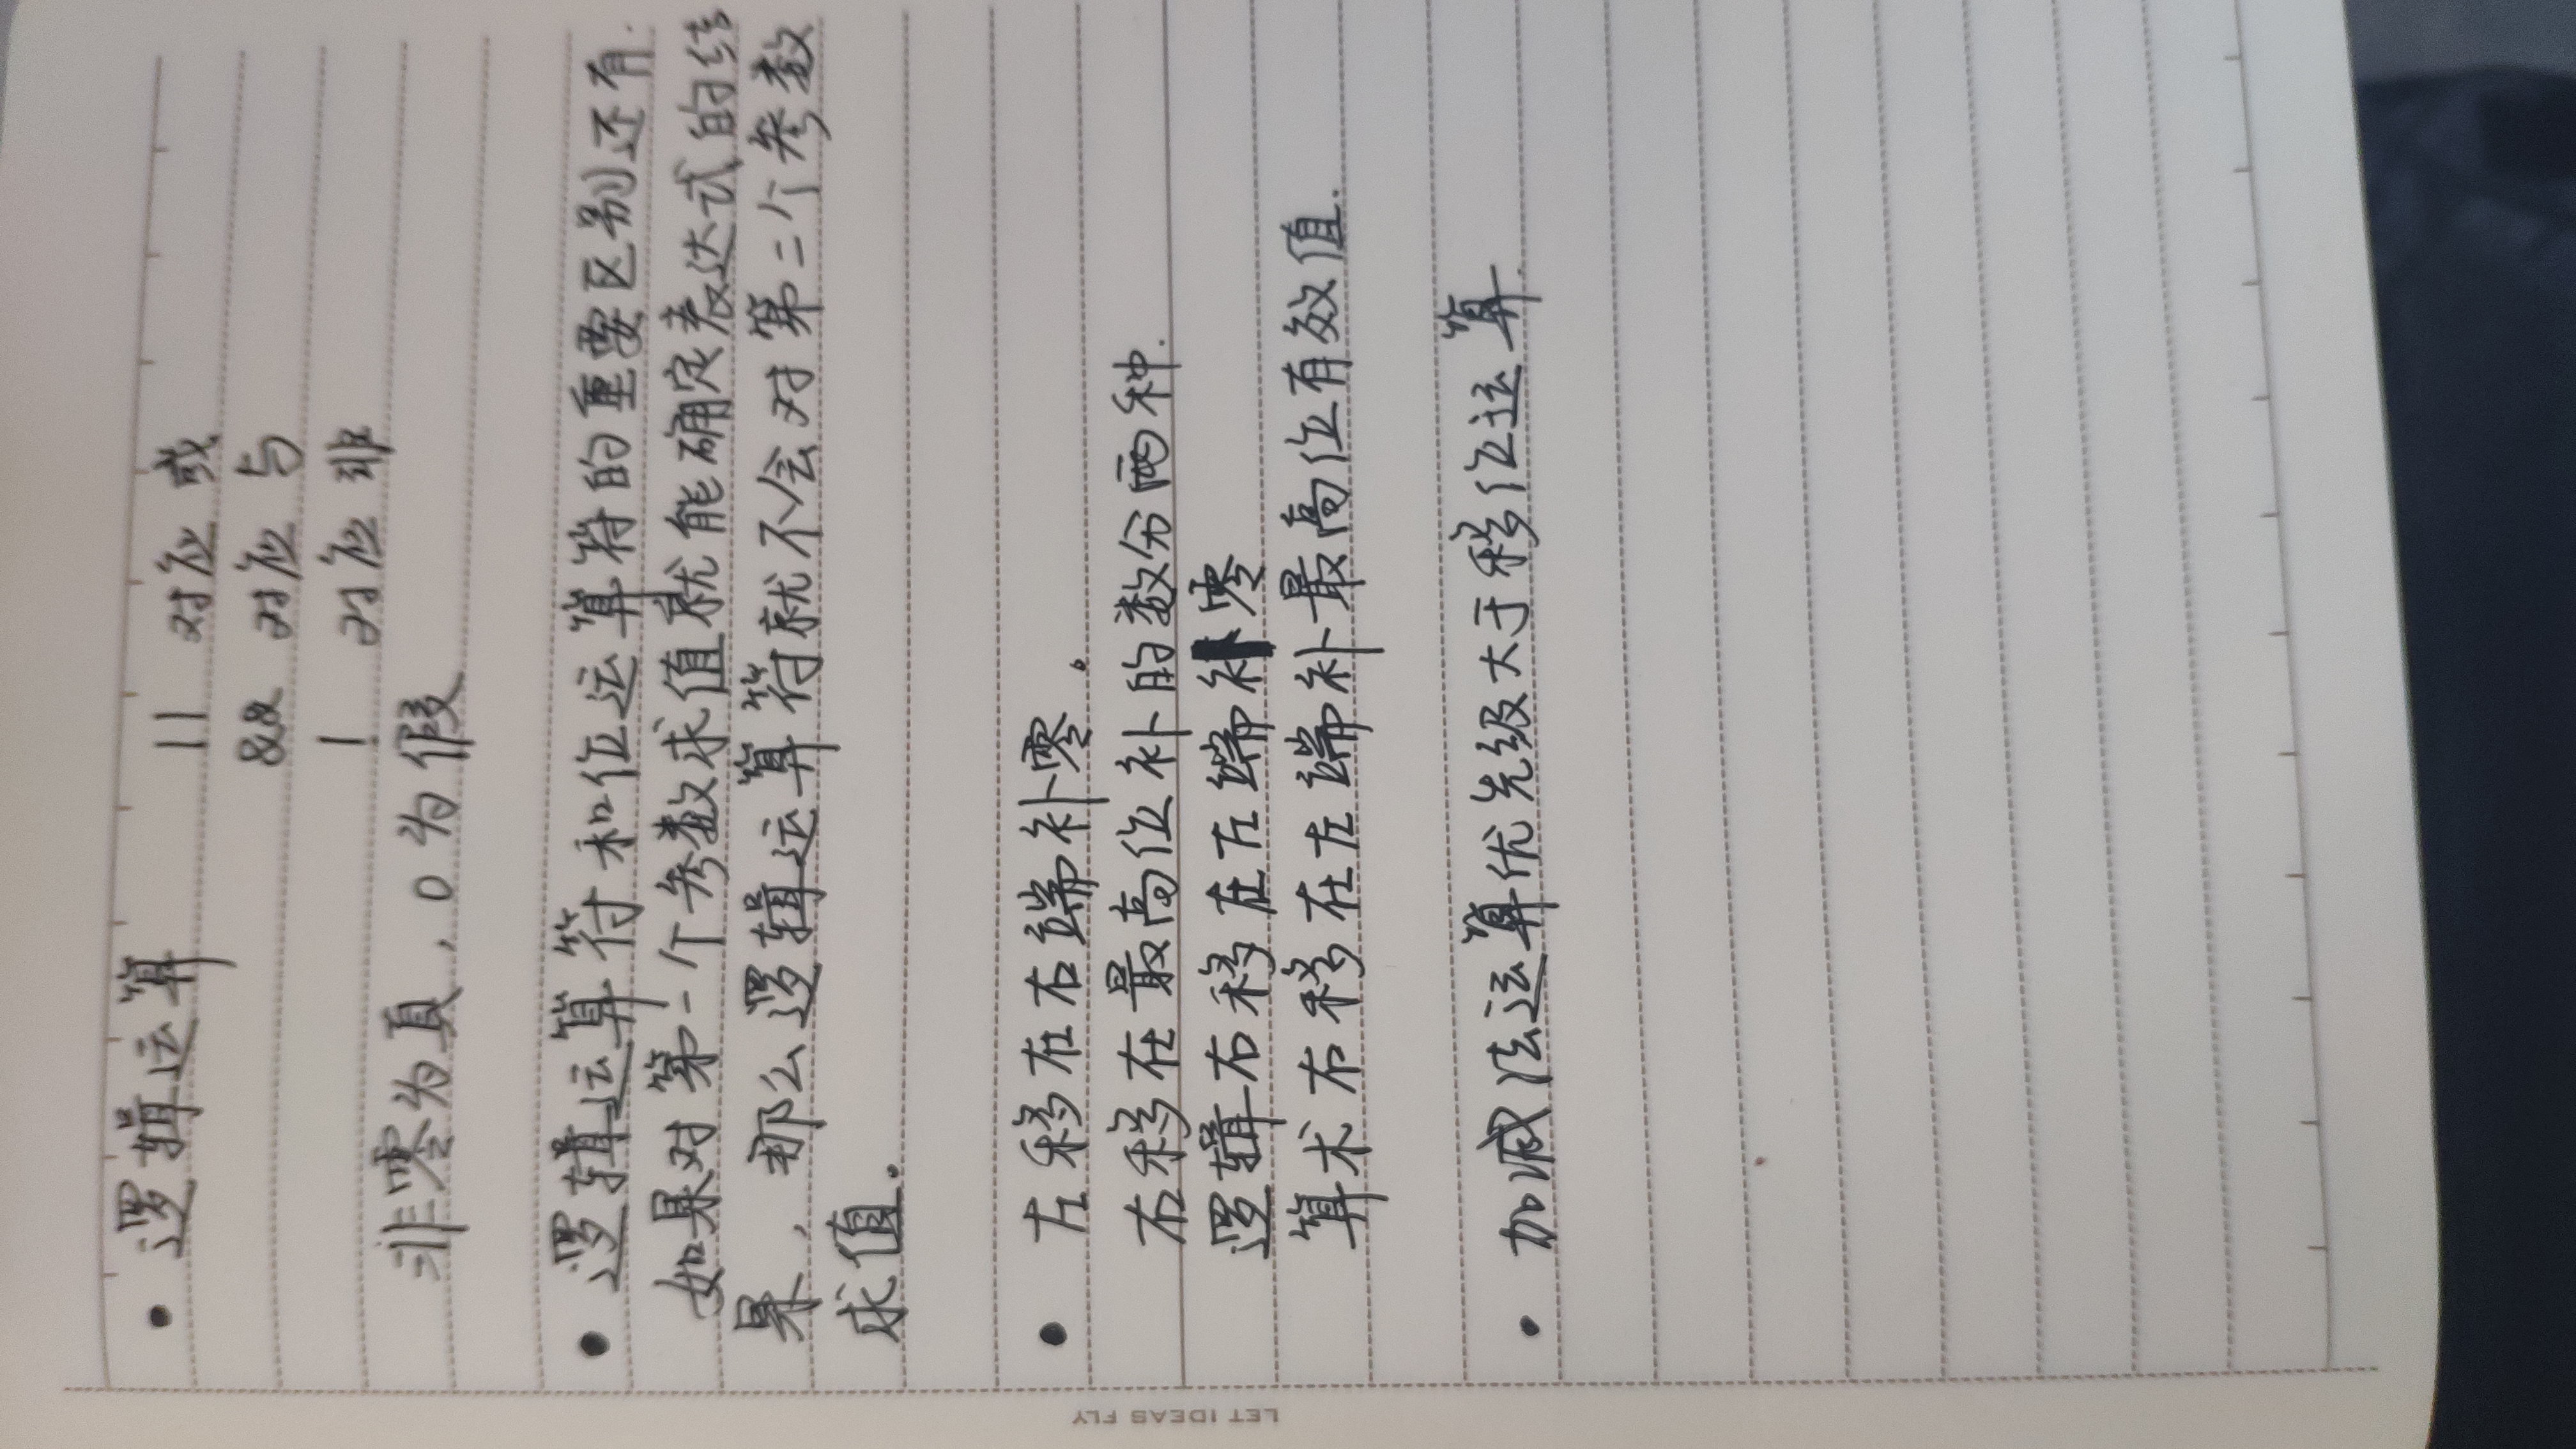 • 逻辑运算
|| 对应 或
&& 对应 与
| 对应 非
非零为真，0为假
• 逻辑运算符和位运算符的重要区别还有.
如果对第一个参数求值就能确定表达式的结
果，那么逻辑运算符就不会对第二个参数
求值.
• 左移在右端补零.
右移在最高位补的数分两种.
逻辑右移在左端补零
算术右移在左端补最高位有效值.
• 加减法运算优先级大于移位运算.
LET IDEAS FLY